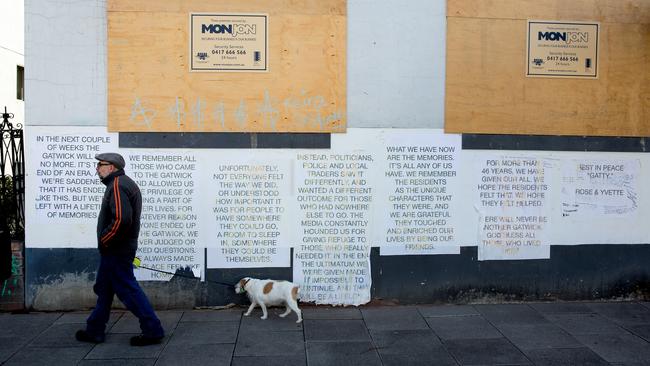 MONJON
SECURING YOUR BUSINESS & OUR BUSINESS
Security Services
0417 666 566
24 hours
MONJON
Security Services
0417 666 566
24 hours
IN THE NEXT COUPLE
OF WEEKS THE
GATWICK WILL
NO MORE. IT'S T
END OF AN ERA
WE'RE SADDEN
THAT IT HAS BE
LIKE THIS, BUT WE'
LEFT WITH A LIFE
OF MEMORIES.
WE REMEMBER ALL
THOSE WHO CAME
TO THE GATWICK
AND ALLOWED US
BEING A PART OF
THEIR LIVES. FOR
WHATEVER REASON
YONE ENDED UP
WE
VER JUDGED OR
KED QUESTIONS.
PEOPLE LIKE
HOM
UNFORTUNATELY,
NOT EVERYONE FELT
THE WAY WE DID,
OR UNDERSTOOD
HOW IMPORTANT
IT WAS FOR PEOPLE
TO HAVE
SOMEWHERE
THEY COULD GO,
A ROOM TO SLEEP
IN, SOMEWHERE
THEY COULD BE
THEMSELVES.
INSTEAD, POLITICIANS,
POLICE AND LOCAL
TRADERS SAW IT
DIFFERENTLY, AND
WANTED A DIFFERENT
OUTCOME FOR THOSE
WHO HAD NOWHERE
ELSE TO GO. THE
MEDIA CONSTANTLY
HOUNDED US FOR
GIVING REFUGE TO
THOSE WHO REALLY
NEEDED IT. IN THE END
THE ULTIMATUM WE
WERE GIVEN MADE
IT IMPOSSIBLE TO
CONTINUE.
WHAT WE HAVE NOW
ARE THE MEMORIES.
IT'S ALL ANY OF US
HAVE. WE REMEMBER
THE RESIDENTS
AS THE UNIQUE
CHARACTERS THAT
THEY WERE, AND
WE ARE GRATEFUL
THEY TOUCHED
AND ENRICHED OUR
LIVES BY BEING OUR
FRIENDS.
FOR MORE THAN
46 YEARS, WE HAVE
GIVEN OUR ALL. WE
HOPE THE RESIDENTS
FELT THAT. WE
HOPE THEY FELT
ERE WILL NEVER BE
NOTHER GATWICK.
GOD BLESS ALL
THOSE WHO LIVED
HERE.
REST IN PEACE
"GATTY."
ROSE & YVETTE